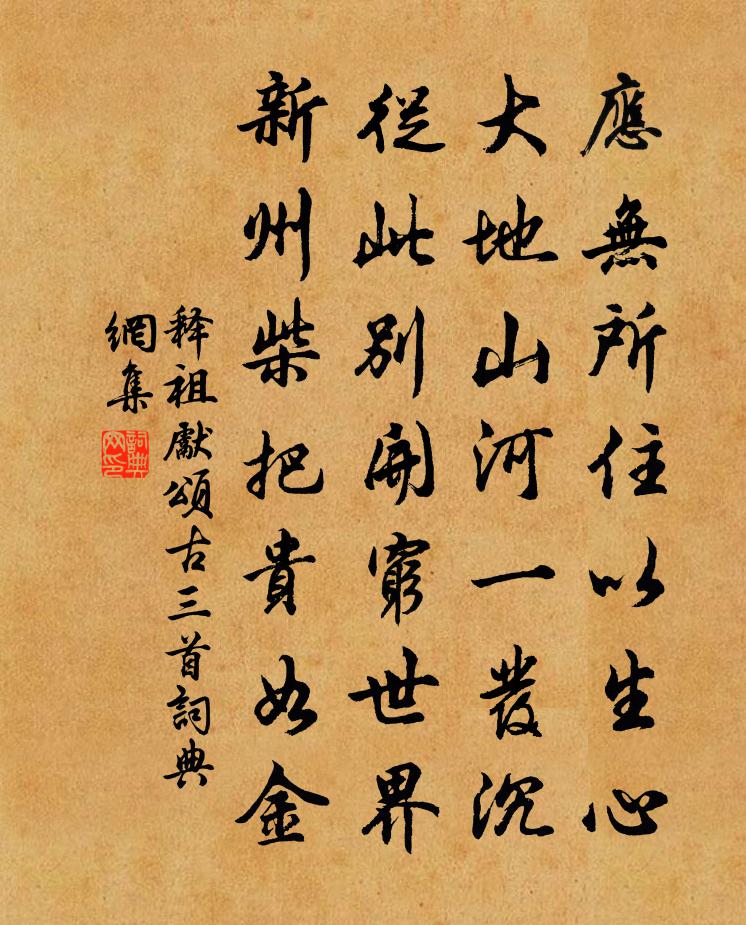 應無所住以生心
大地山河一發沉
從此別開窮世界
新州柴把貴如金
释祖獻頌古三首詞典
網集
詞典
网印